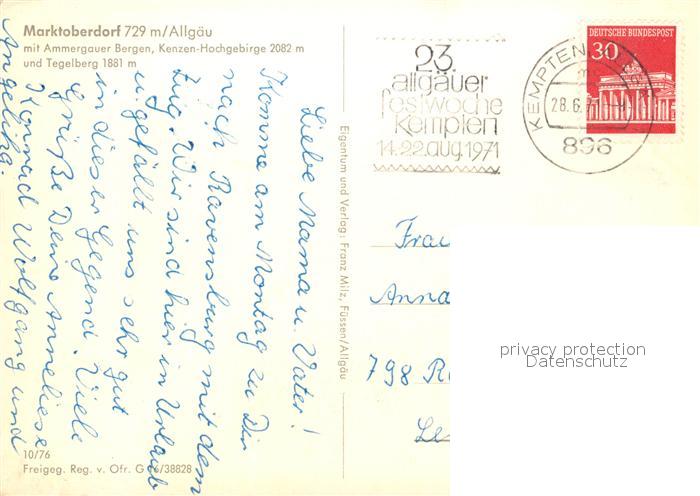 Marktoberdorf 729 m/Allgäu
mit Ammergauer Bergen, Kenzen-Hochgebirge 2082 m
und Tegelberg 1881 m
23.
allgäuer
festwoche
Kempten
14.-22. aug. 1971
KEMPTEN
28.6.
896
DEUTSCHE BUNDESPOST
30
Liebe Mama u. Vater!
Komme am Montag zu Dir
nach Ravensburg mit dem
Zug. Wir sind hier in Urlaub
u. gefällt uns sehr gut
in dieser Gegend. Viele
Grüße Deine Anneliese
Konrad Wolfgang und
Angelika.
Eigentum und Verlag: Franz Milz, Füssen/Allgäu
Frau
Anna
798 R
privacy protection
Datenschutz
10/76
Freigeg. Reg. v. Ofr. G /38828